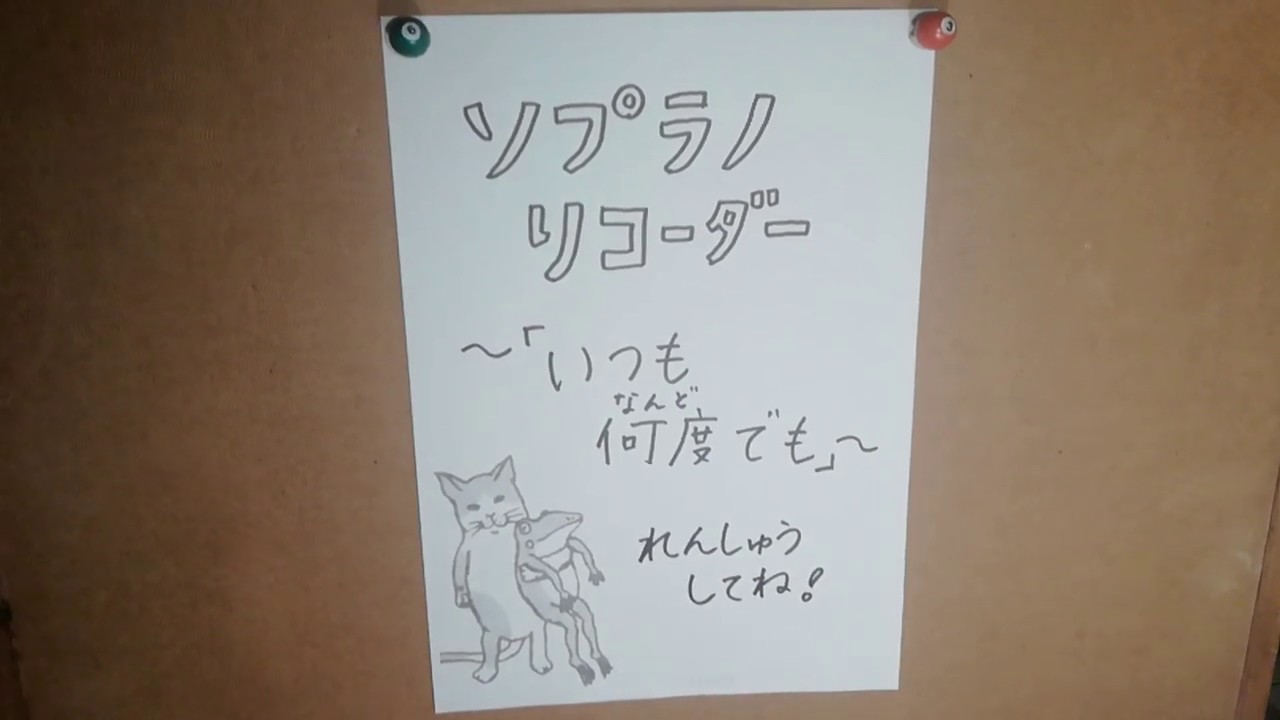 ソプラノ
リコーダー
～「いつも
なんど
何度でも」～
れんしゅう
してね!